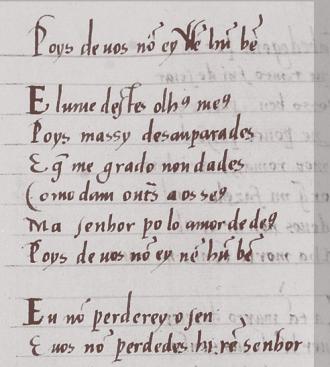 Poys de uos nō ey nē hūu bē
E lume destes olhꝯ meꝯ
Poys massy desamparades
E q̄ me grado non dades
Como dam outs̄ aos seꝯ
Ma senhor polo amor de deꝯ
Poys de uos nō ey nē hūu bē
Eu nō perderey o sen
E uos nō perdedes hi rē senhor